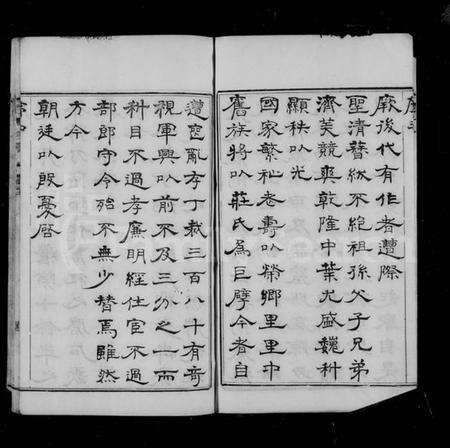 厥後代有作者遭際
聖清簪紱不絕祖孫父子兄弟
濟美競爽乾隆中葉尤盛巍科
顯秩以光
國家繁祉耆壽以榮鄉里里中
舊族將以莊氏為巨擘今者自
遭寇亂存丁裁三百八十有奇
視軍興以前不及三分之一而
科目不過孝廉明經仕宦不過
部郎守令殆不無少替焉雖然
方今
朝廷以殷憂啟